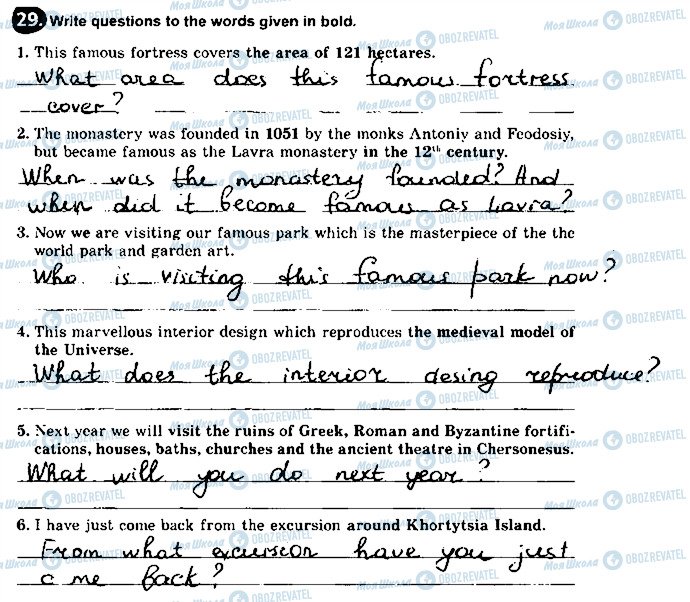 29. Write questions to the words given in bold.
1. This famous fortress covers the area of 121 hectares.
What area does this famous fortress
cover?
2. The monastery was founded in 1051 by the monks Antoniy and Feodosiy,
but became famous as the Lavra monastery in the 12th century.
When was the monastery founded? And
when did it become famous as Lavra?
3. Now we are visiting our famous park which is the masterpiece of the the
world park and garden art.
Who is visiting this famous park now?
4. This marvellous interior design which reproduces the medieval model of
the Universe.
What does the interior desing reproduce?
5. Next year we will visit the ruins of Greek, Roman and Byzantine fortifi-
cations, houses, baths, churches and the ancient theatre in Chersonesus.
What will you do next year?
6. I have just come back from the excursion around Khortytsia Island.
From what excursion have you just
come back?
Моя Школа OBOZREVATEL